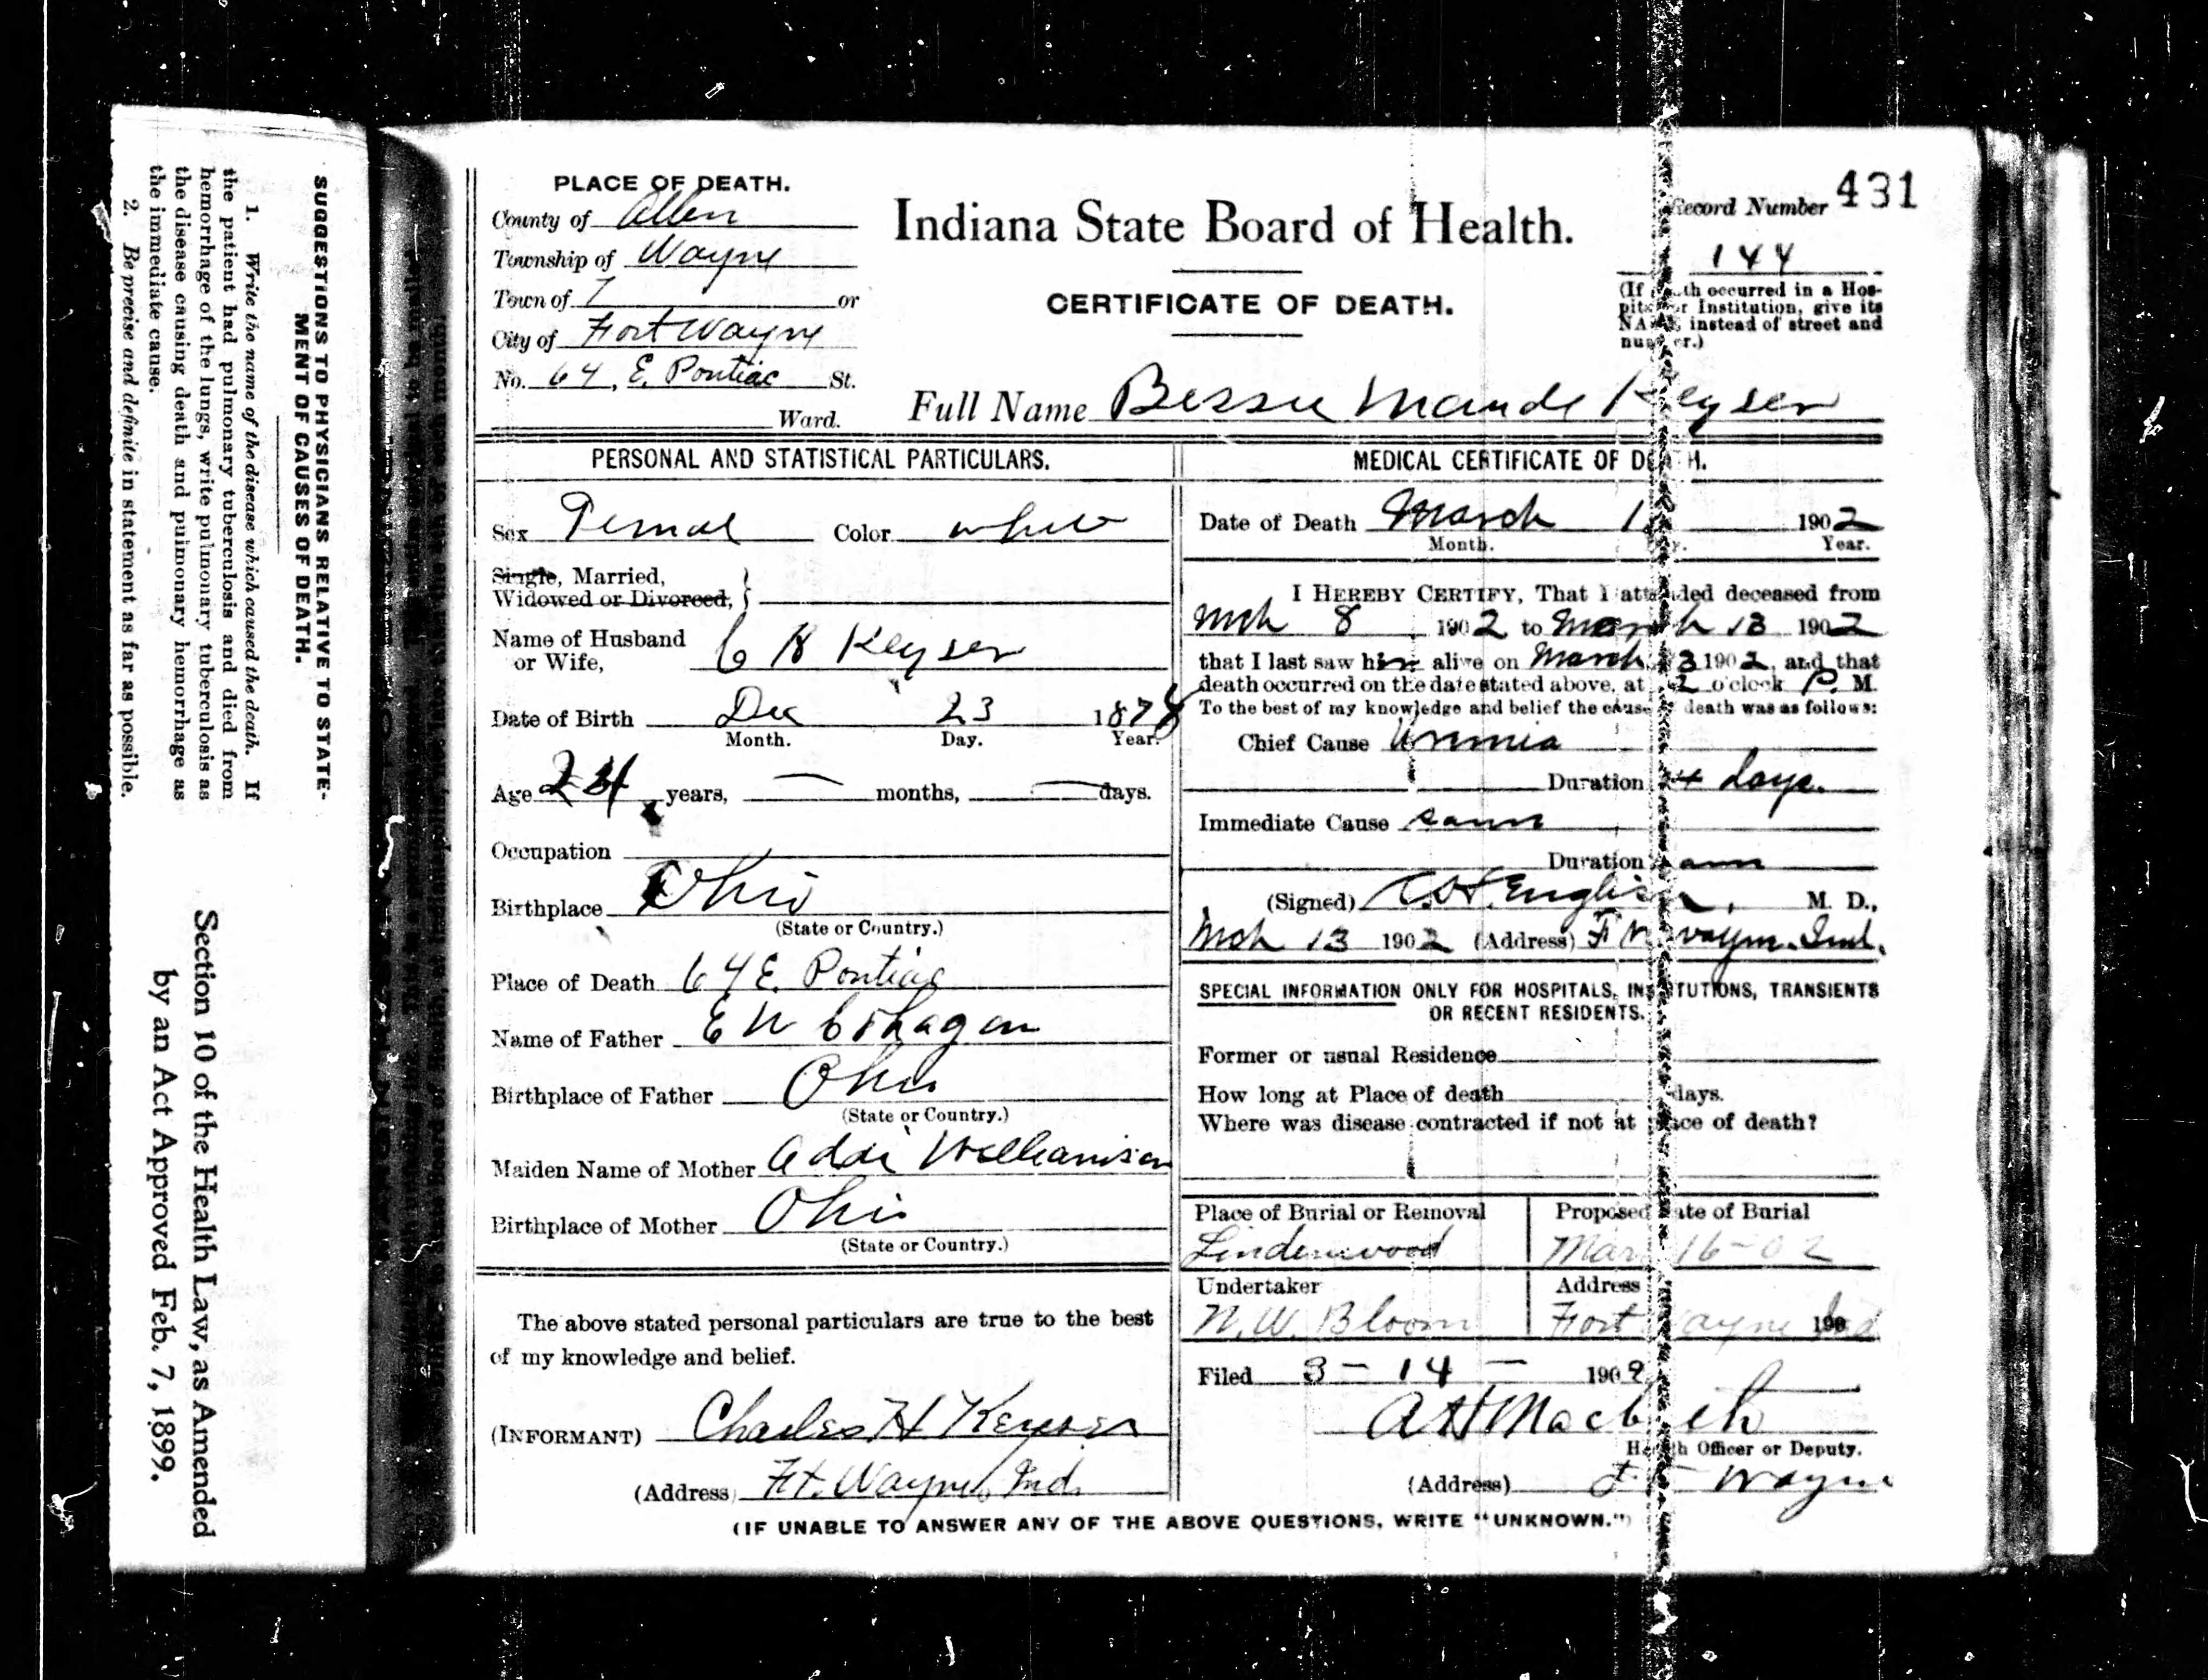 SUGGESTIONS TO PHYSICIANS RELATIVE TO STATE-
MENT OF CAUSES OF DEATH.
1. Write the name of the disease which caused the death. If
the patient had pulmonary tuberculosis and died from
hemorrhage of the lungs, write pulmonary tuberculosis as
the disease causing death and pulmonary hemorrhage as
the immediate cause.
2. Be precise and definite in statement as far as possible.
Section 10 of the Health Law, as Amended
by an Act Approved Feb. 7, 1899.
PLACE OF DEATH.
County of Allen
Township of Wayne
Town of or
City of Fort Wayne
No. 64, E. Pontiac St.
Ward.
Indiana State Board of Health.
CERTIFICATE OF DEATH.
Record Number 431
144
(If death occurred in a Hos-
pital or Institution, give its
NAME instead of street and
number.)
Full Name Bessie Maude Keyser
PERSONAL AND STATISTICAL PARTICULARS.
Sex Femal Color white
Single, Married,
Widowed or Divorced,
Name of Husband
or Wife, Keyser
Date of Birth Dec 23 187
Month. Day. Year.
Age years, months, days.
Occupation
Birthplace Ohio
(State or Country.)
Place of Death 64 E. Pontiac
Name of Father E W Cohagan
Birthplace of Father Ohio
(State or Country.)
Maiden Name of Mother Addi Williamson
Birthplace of Mother Ohio
(State or Country.)
The above stated personal particulars are true to the best
of my knowledge and belief.
(INFORMANT) Charles H Keyser
(Address) Ft. Wayne Ind.
MEDICAL CERTIFICATE OF DEATH.
Date of Death March 1902
Month. Day. Year.
I HEREBY CERTIFY, That I attended deceased from
Mch 8 1902 to March 13 1902
that I last saw her alive on March 13 1902, and that
death occurred on the date stated above, at o'clock P. M.
To the best of my knowledge and belief the cause of death was as follows:
Chief Cause Uremia
Duration 4 days.
Immediate Cause same
Duration same
(Signed) English, M. D.,
Mch 13 1902 (Address) Ft Wayne. Ind.
SPECIAL INFORMATION ONLY FOR HOSPITALS, INSTITUTIONS, TRANSIENTS
OR RECENT RESIDENTS.
Former or usual Residence
How long at Place of death days.
Where was disease contracted if not at place of death?
Place of Burial or Removal
Lindenwood
Proposed Date of Burial
Mar 16-02
Undertaker
N. W. Bloom
Address
Fort Wayne Ind
Filed 3-14- 1902
A H Macbeth
Health Officer or Deputy.
(Address) Ft Wayne
(IF UNABLE TO ANSWER ANY OF THE ABOVE QUESTIONS, WRITE "UNKNOWN.")